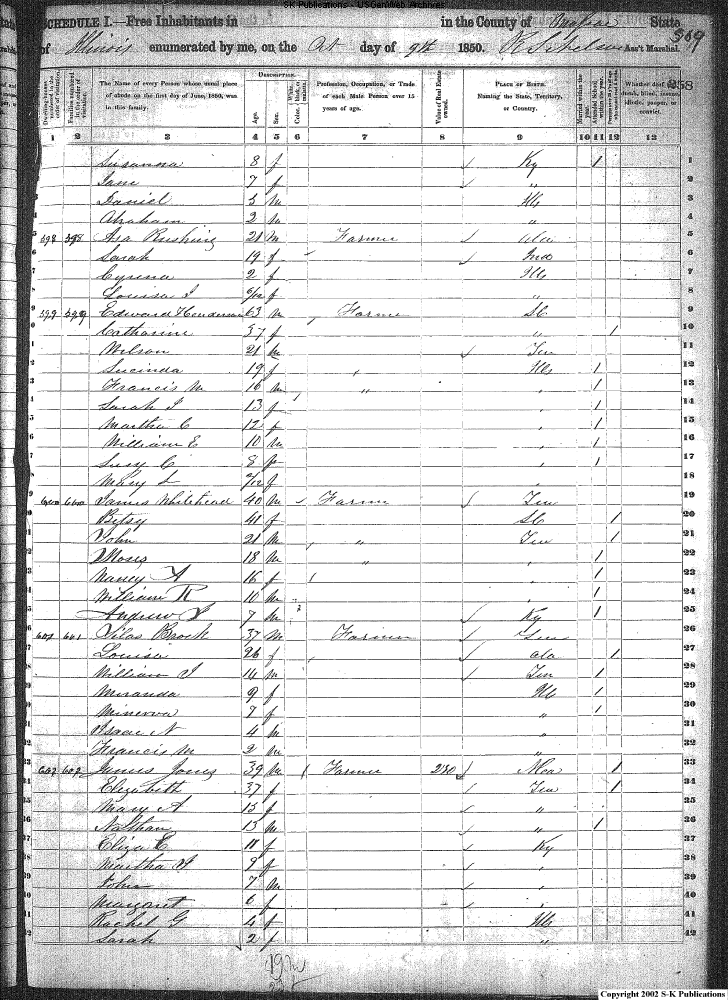 SK Publications - USGenWeb Archives
SCHEDULE I.—Free Inhabitants in in the County of State
of Illinois enumerated by me, on the Oct day of 9th 1850. Ass't Marshal. 509
258
Dwelling-houses numbered in the order of visitation.
Families numbered in the order of visitation.
The Name of every Person whose usual place of abode on the first day of June, 1850, was in this family.
DESCRIPTION.
Age.
Sex.
Color, White, black, or mulatto.
Profession, Occupation, or Trade of each Male Person over 15 years of age.
Value of Real Estate owned.
PLACE OF BIRTH. Naming the State, Territory, or Country.
Married within the year.
Attended School within the year.
Whether deaf and dumb, blind, insane, idiotic, pauper, or convict.
1 2 3 4 5 6 7 8 9 10 11 12 13
Susanna 8 f Ky 1 1
Jane 7 f " 2
Daniel 5 m Ills 3
Abraham 2 m " 4
598 598 Asa Rushing 21 m Farmer Ala 5
Sarah 19 f Ind 6
Cyrena 2 f Ills 7
Louisa J 6/12 f " 8
599 599 Edward Henderson 63 m Farmer SC 9
Catharine 37 f " 1 10
Wilson 21 m Ten 11
Lucinda 19 f Ills 1 12
Francis M 16 m " 1 13
Sarah J 13 f 1 14
Martha C 12 f 1 15
William E 10 m 1 16
Susy C 8 f 1 17
Mary L /12 f 18
600 600 James Whitehead 40 m Farmer Ten 19
Betsy 41 f SC 1 20
John 21 m " Ten 1 21
Moses 18 m " 1 22
Nancy A 16 f 1 23
William R 10 m 1 24
Andrew J 7 m Ky 1 25
601 601 Silas Brock 37 m Farmer Ten 26
Louisa 26 f Ala 1 27
William J 14 m Ten 1 28
Miranda 9 f Ills 1 29
Minerva 7 f " 1 30
Isaac N 4 m " 31
Francis M 2 m " 32
602 602 James Jones 39 m Farmer 250 1 33
Elizabeth 37 f Ten 1 34
Mary A 15 f " 35
Nathan 13 m " 1 36
Eliza E 11 f Ky 37
Martha 9 f 38
John 7 m 39
Margaret 6 f 40
Rachel G 4 f Ills 41
Sarah 2 f " 42
19 m
Copyright 2002 S-K Publications